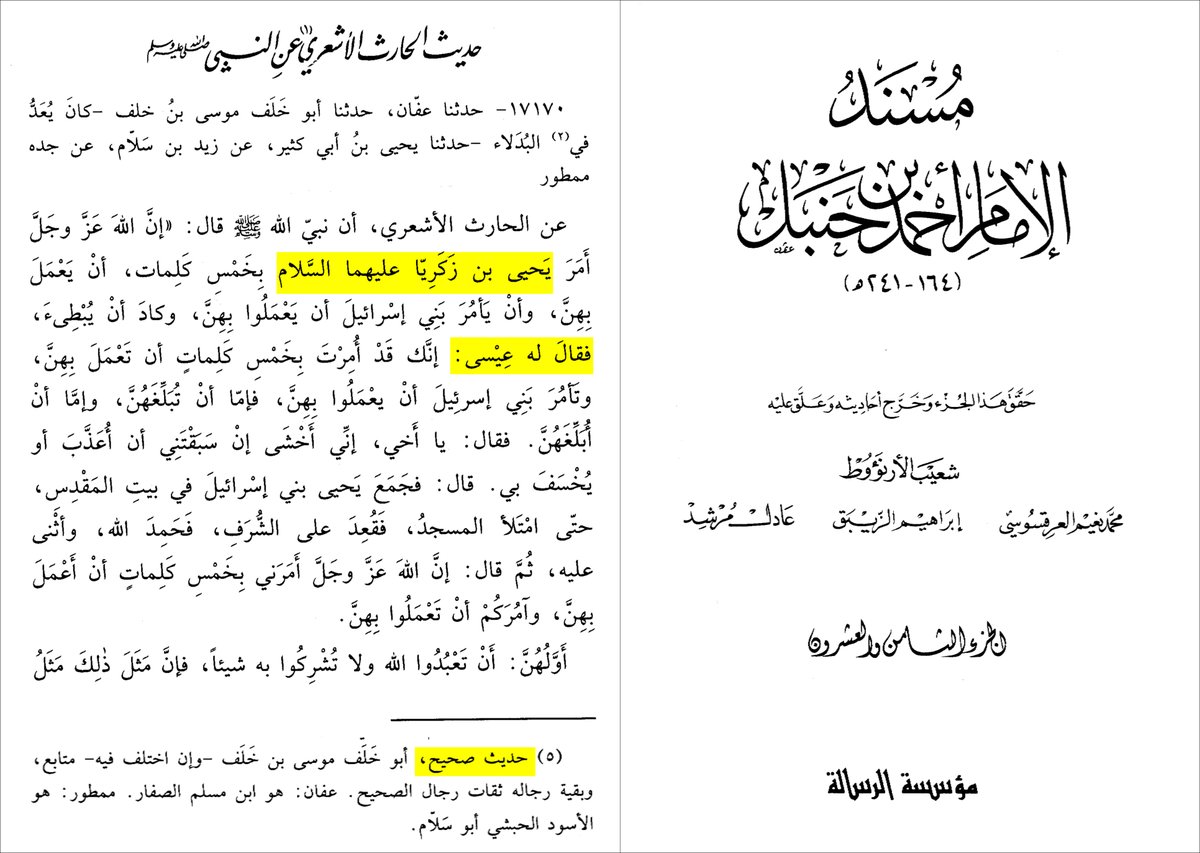 مُسْنَدُ
الإمَامِ أَحْمَد بْنِ حَنْبَل
(١٦٤ - ٢٤١ هـ)
حَقَّقَ هَذَا الجُزْء وَخَرَّج أحَادِيثه وَعَلَّقَ عَلَيْه
شعَيْب الأرنؤوط
محمَّد نعَيْم العرقسُوسيّ إبرَاهِيم الزّيبَق عَادل مُرشِد
الجزء الثامن والعشرون
مؤسسة الرسالة
حديث الحارث الأشعري(١) عن النبي صلى الله عليه وسلم
١٧١٧٠- حدثنا عفّان، حدثنا أبو خَلَف موسى بنُ خلف -كانَ يُعَدُّ
في(٢) البُدَلاء -حدثنا يحيى بنُ أبي كثير، عن زيد بن سَلّام، عن جده
ممطور
عن الحارث الأشعري، أن نبيّ الله ﷺ قال: «إنَّ اللهَ عَزَّ وجَلَّ
أَمَرَ يَحيى بن زَكَرِيّا عليهما السَّلام بِخَمْسِ كَلِمات، أنْ يَعْمَلَ
بِهِنَّ، وأنْ يَأمُرَ بَنِي إسْرائيلَ أن يَعْمَلُوا بِهِنَّ، وكادَ أنْ يُبْطِىءَ،
فقالَ له عِيْسى: إنَّك قَدْ أُمِرْتَ بِخَمْسِ كَلِماتٍ أن تَعْمَلَ بِهِنَّ،
وتَأمُرَ بَنِي إسرئِيلَ أنْ يعْمَلُوا بِهِنَّ، فإمّا أنْ تُبَلِّغَهُنَّ، وإمَّا أنْ
أُبَلِّغَهُنَّ. فقال: يا أَخي، إنِّي أَخْشَى إنْ سَبَقْتَنِي أن أُعَذَّبَ أو
يُخْسَفَ بي. قال: فجَمَعَ يَحيى بني إسْرائيلَ في بيتِ المَقْدِس،
حتّى امْتَلأ المسجدُ، فَقُعِدَ على الشُّرَفِ، فَحَمِدَ الله، وأَثْنى
عليه، ثُمَّ قال: إنَّ اللهَ عَزَّ وجَلَّ أَمَرَني بِخَمْسِ كَلِماتٍ أنْ أَعْمَلَ
بِهِنَّ، وآمُرَكُمْ أنْ تَعْمَلُوا بِهِنَّ.
أَوَّلُهُنَّ: أَنْ تَعْبُدُوا الله ولا تُشْرِكُوا به شيئاً، فإنَّ مَثَلَ ذٰلِكَ مَثَلُ
(٥) حديث صحيح، أبو خَلَف موسى بن خَلَف -وإن اختلف فيه- متابع،
وبقية رجاله ثقات رجال الصحيح. عفان: هو ابن مسلم الصفار. ممطور: هو
الأسود الحبشي أبو سَلّام.